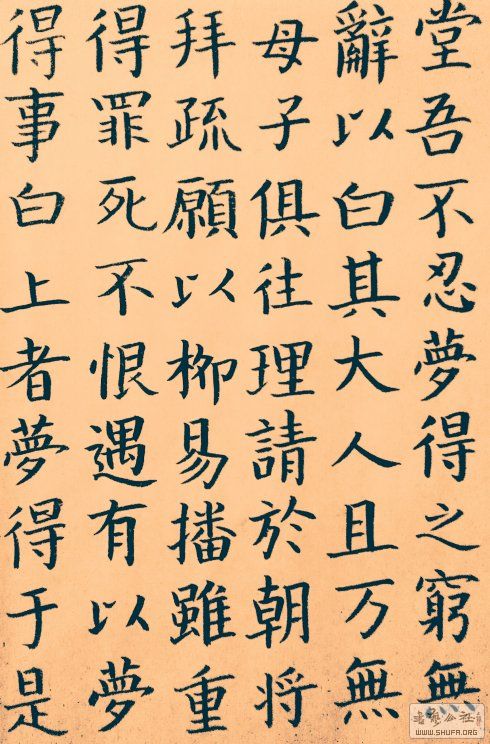 堂吾不忍夢得之窮無
辭以白其大人且万無
母子俱往理請於朝將
拜疏願以柳易播雖重
得罪死不恨遇有以夢
得事白上者夢得于是
WWW.SHUFA.ORG